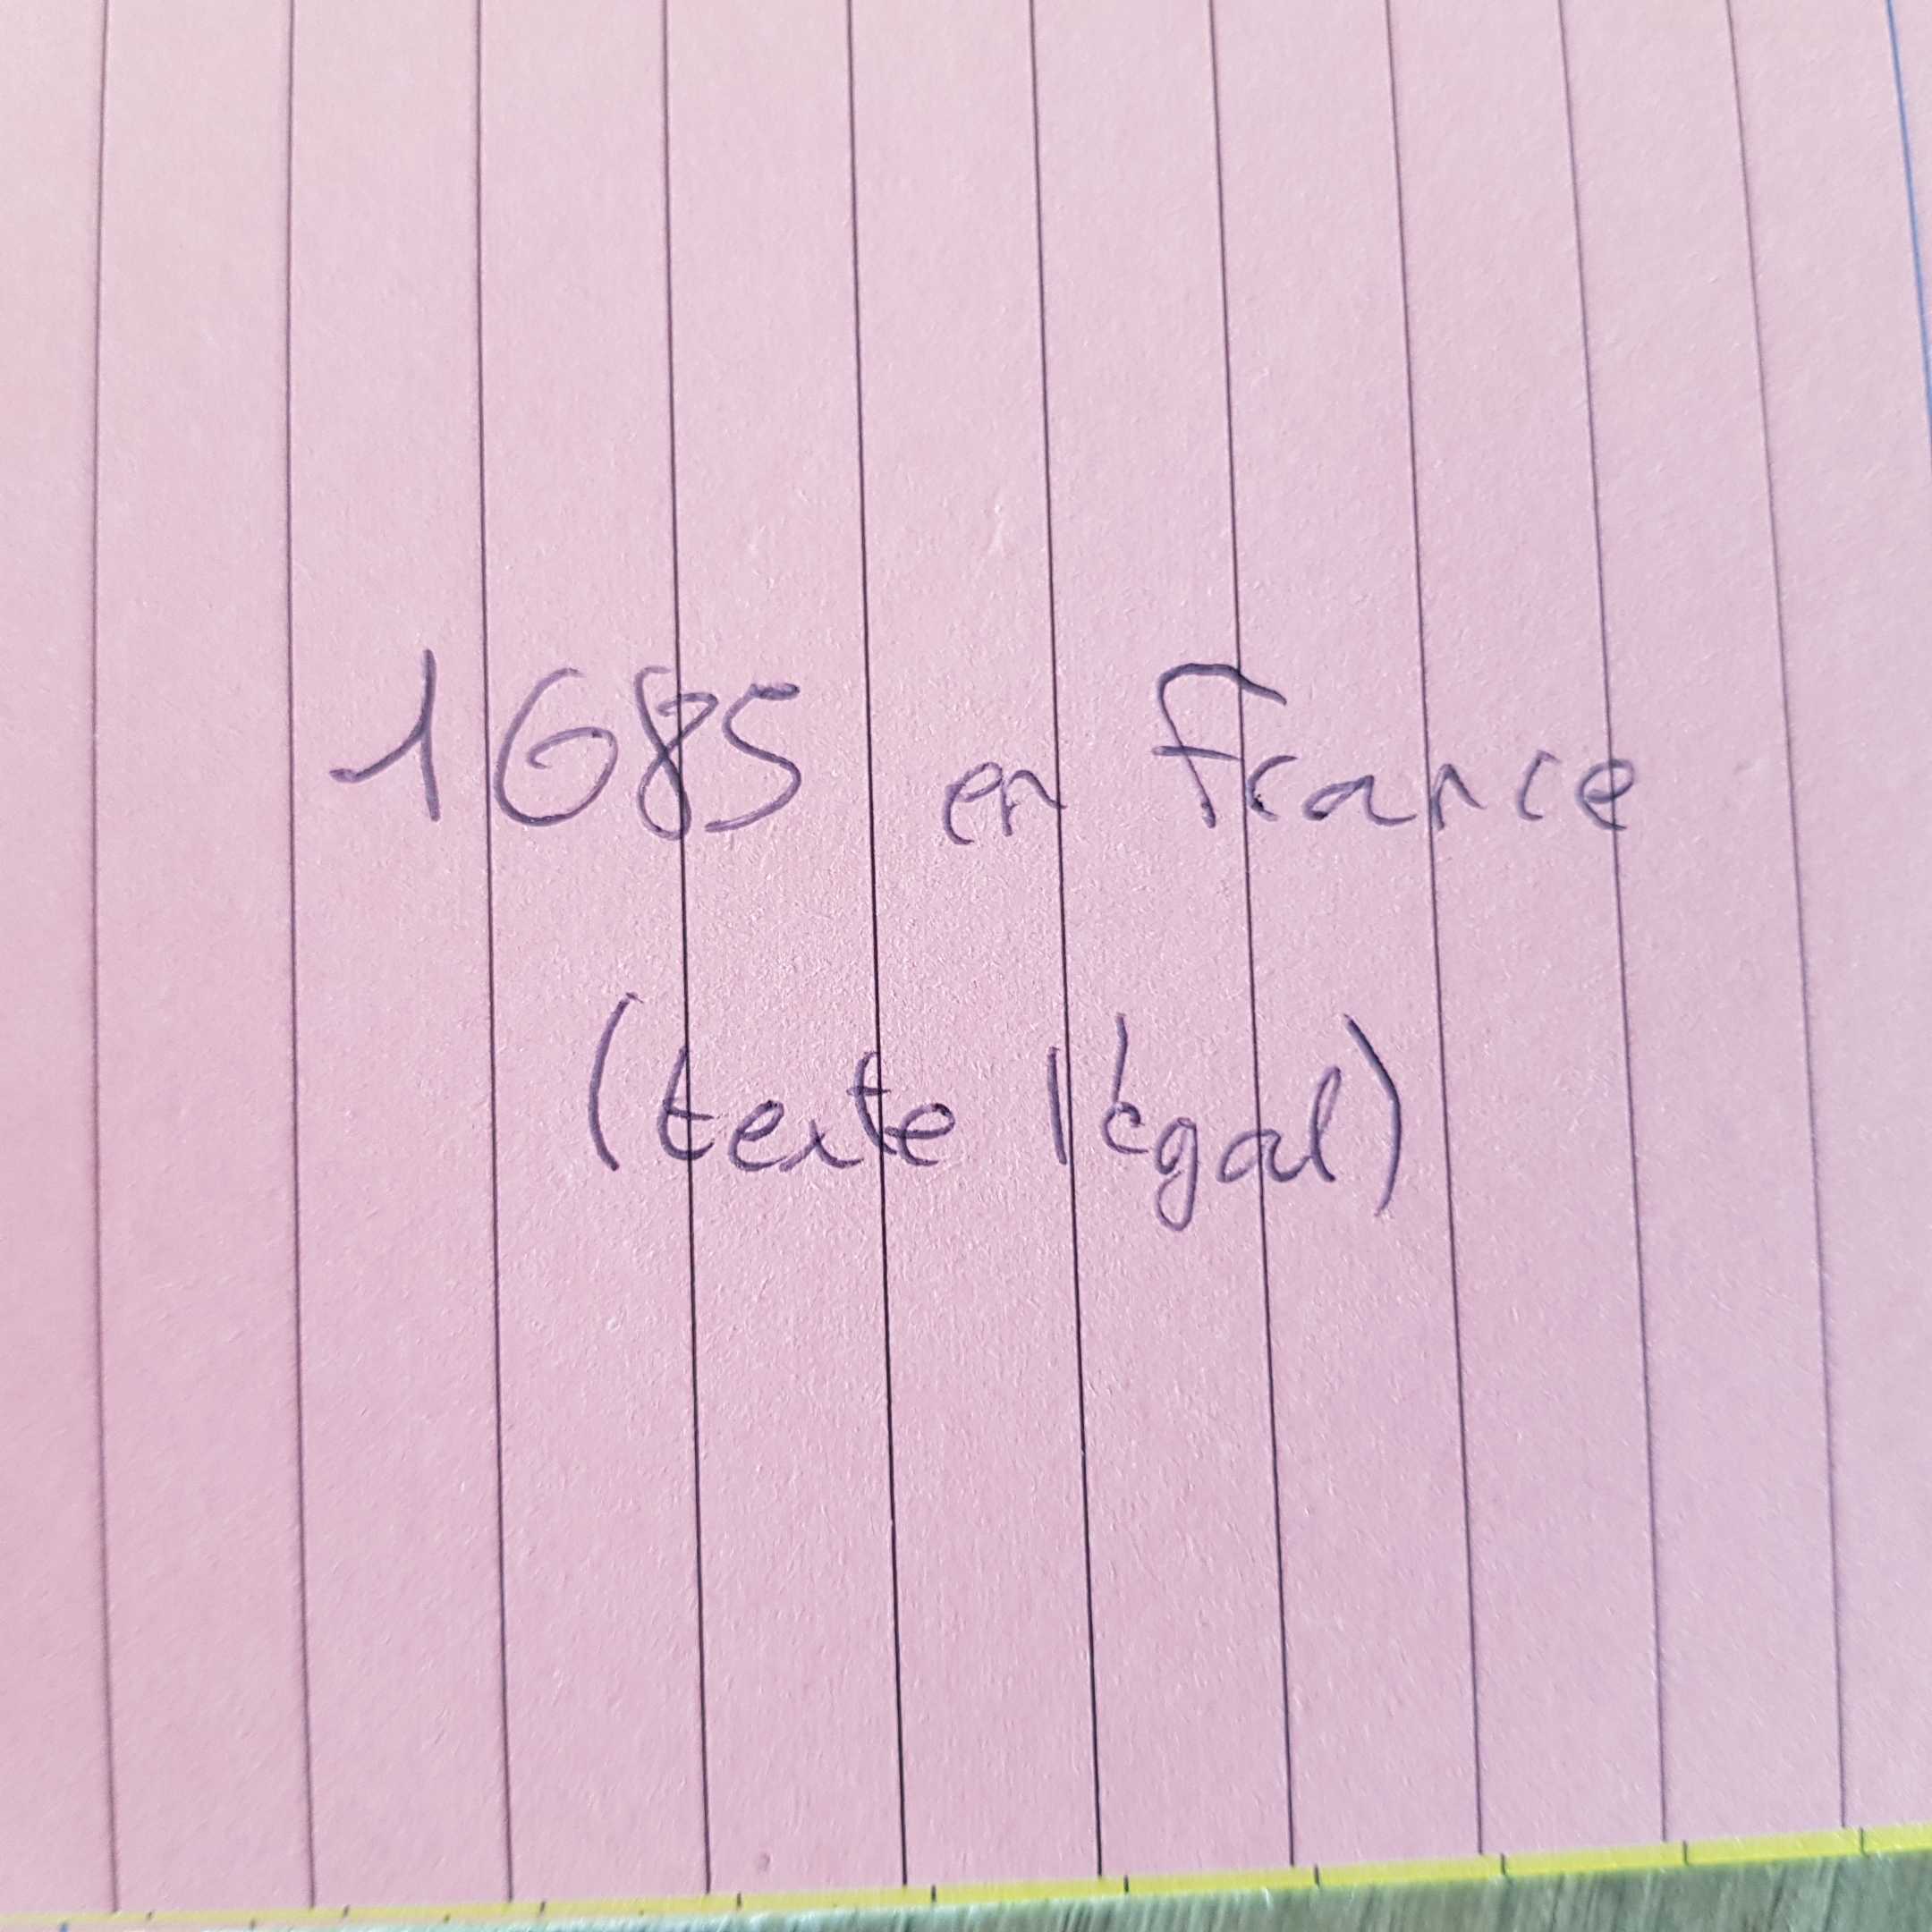 1685 en France
(texte légal)